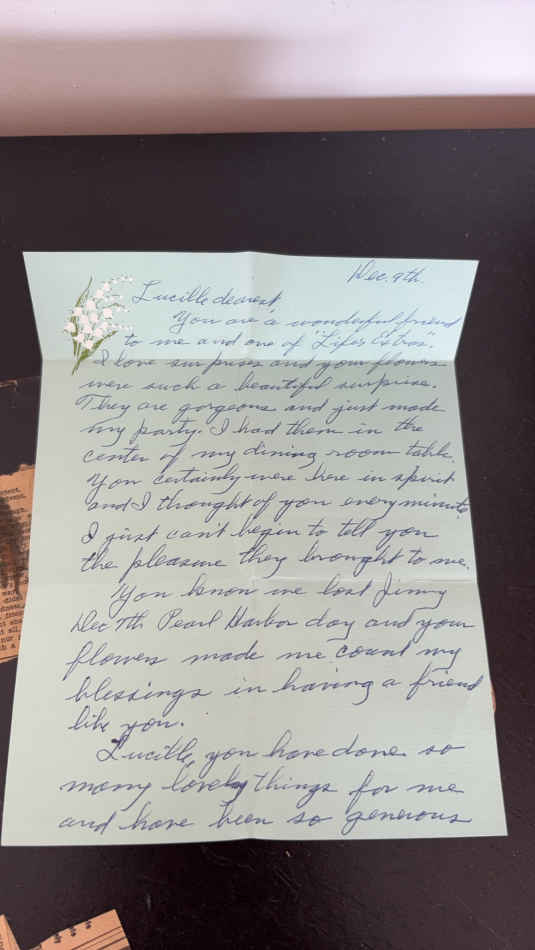 Dec. 9th.
Lucille dearest,
You are a wonderful friend
to me and one of "Life's Extras."
I love surprises and your flowers
were such a beautiful surprise.
They are gorgeous and just made
my party. I had them in the
center of my dining room table.
You certainly were here in spirit
and I thought of you every minute
I just can't begin to tell you
the pleasure they brought to me.
You know we lost Jimmy
Dec 7th Pearl Harbor day and your
flowers made me count my
blessings in having a friend
like you.
Lucille, you have done so
many lovely things for me
and have been so generous